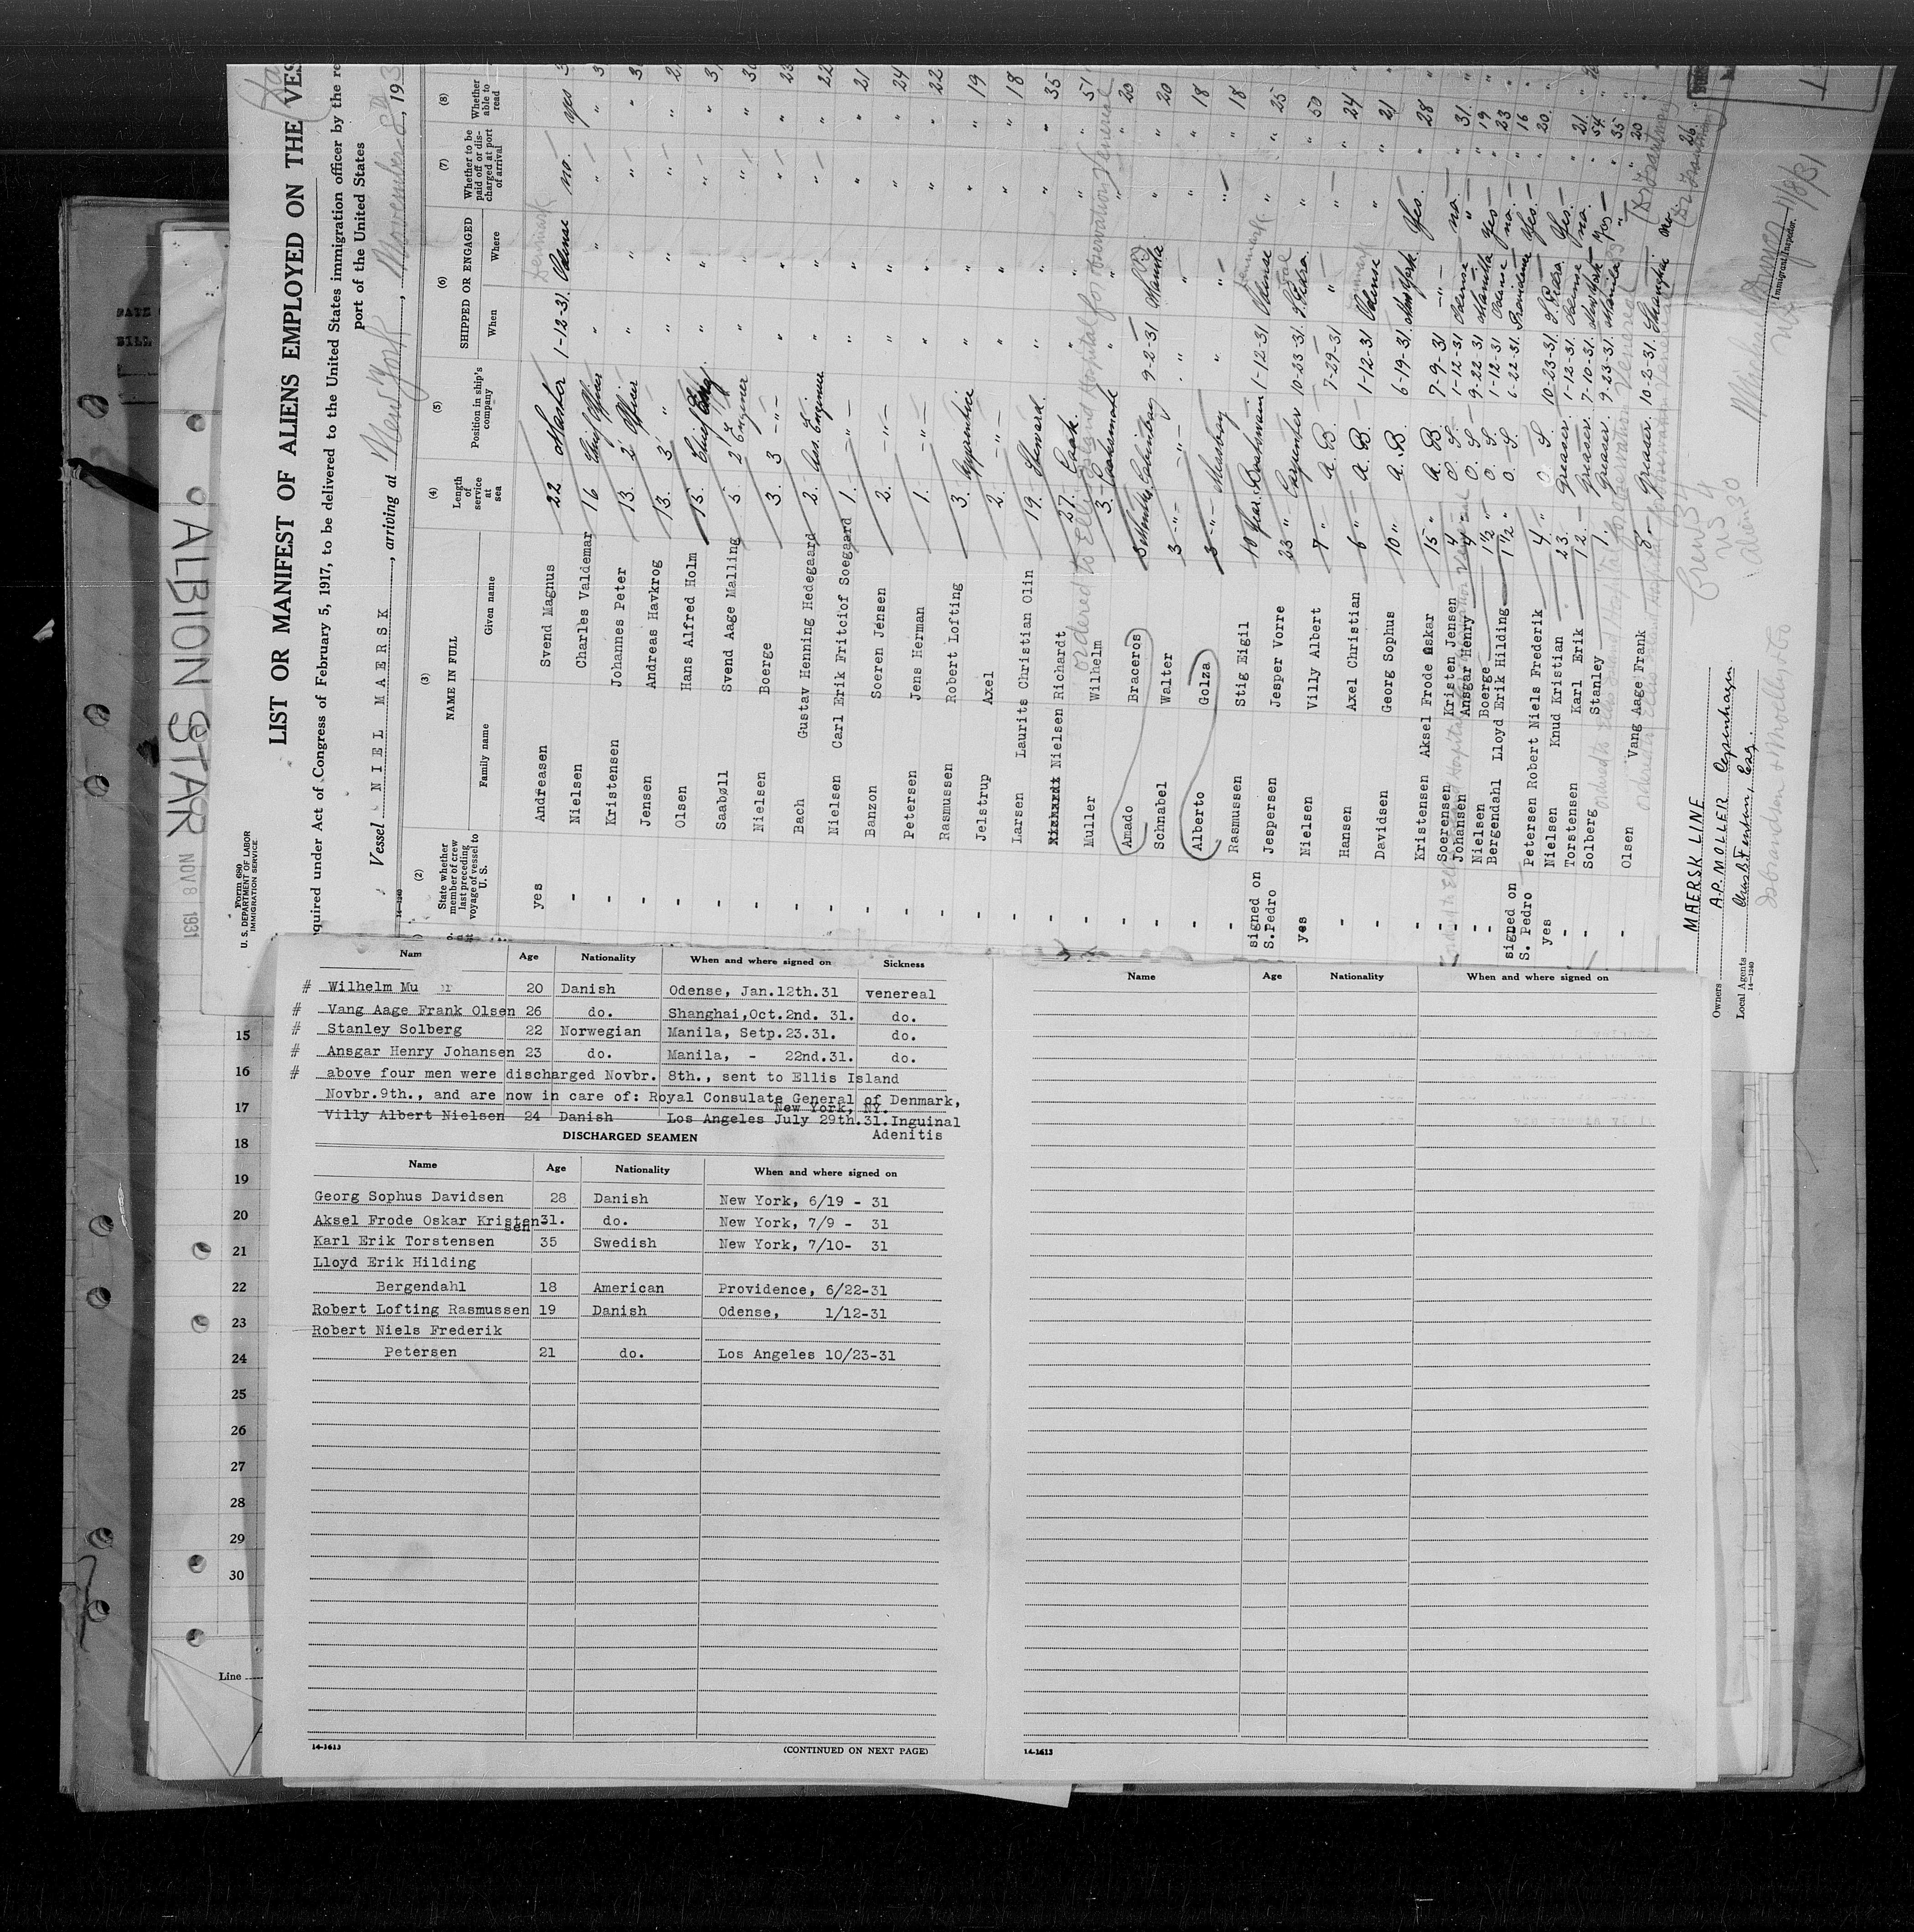 ALBION STAR
NOV 8 1931
Form 680
U. S. DEPARTMENT OF LABOR
IMMIGRATION SERVICE
LIST OR MANIFEST OF ALIENS EMPLOYED ON THE VES
quired under Act of Congress of February 5, 1917, to be delivered to the United States immigration officer by the re
port of the United States
Vessel NIEL MAERSK, arriving at New York, November 8th, 193
14-1240
(2) (3) (4) (5) (6) (7) (8)
State whether member of crew last preceding voyage of vessel to U. S.
NAME IN FULL
Family name Given name
Length of service at sea
Position in ship's company
SHIPPED OR ENGAGED
When Where
Whether to be paid off or discharged at port of arrival
Whether able to read
yes Andreasen Svend Magnus 22 Master 1-12-31. Odense no. yes
- Nielsen Charles Valdemar 16 Chief Officer " " " "
- Kristensen Johannes Peter 13. 2' Officer " " " "
- Jensen Andreas Havkrog 13. 3' " " " " "
- Olsen Hans Alfred Holm 15. Chief Eng. " " " "
- Saabøll Svend Aage Malling 5 2' Engineer " " " "
- Nielsen Boerge 3. 3 -"- " " " " 23
- Bach Gustav Henning Hedegaard 2. Ass. Engineer " " " " 22
- Nielsen Carl Erik Fritciof Soegaard 1. -"- " " " " 21
- Banzon Soeren Jensen 2. -"- " " " " 24
- Petersen Jens Herman 1. -"- " " " " 22
- Rasmussen Robert Lofting 3. Apprentice " " " " 19
- Jelstrup Axel 2. -"- " " " " 18
- Larsen Laurits Christian Olin 19. Steward. " " " " 35
- Nielsen Richardt 27. Cook. " " " " 51
- Muller Wilhelm 3. Cooksmate " " " " 20
ordered to Ellis Island Hospital for observation Venereal
- Amado Braceros 3 Months. Cabinboy 9-2-31 Manila " " 20
- Schnabel Walter 3 -"- -"- " " " " 18
- Alberto Golza 3 -"- Messboy " " " " 18
- Rasmussen Stig Eigil 10 Year. 1-12-31 Odense " " 25
signed on S.Pedro Jespersen Jesper Vorre 23 " Carpenter 10-23-31. S. Pedro. " " 50
yes Nielsen Villy Albert 7 " A. B. 7-29-31 " " " 24
- Hansen Axel Christian 6 " A. B. 1-12-31 Odense " " 21
- Davidsen Georg Sophus 10 " A. B. 6-19-31 New York. Yes. " 28
- Kristensen Aksel Frode Oskar 15 " A. B. 7-9-31 -"- " 31.
- Soerensen Kristen Jensen 4. O. S. 1-12-31 Odense no. " 19
- Johansen Ansgar Henry 4 " O. S. 9-22-31 Manilla " 23
- Nielsen Boerge 1½ " O. S. 1-12-31 Odense no. " 16
- Bergendahl Lloyd Erik Hilding 1½ " O. S. 6-22-31. Providence Yes. " 20.
signed on S. Pedro Petersen Robert Niels Frederik 4. " O. S. 10-23-31. S. Pedro. Yes. " 21
yes Nielsen Knud Kristian 23. Greaser. 1-12-31. Odense no. " 54.
- Torstensen Karl Erik 12. Greaser. 7-10-31. New York Yes " 35
- Solberg Stanley 1. Greaser. 9-23-31. Manila " 20
- Olsen Vang Aage Frank 5. Greaser. 10-2-31. Shanghai no. " 26.
Crew 34
US 4
Alien 30
Immigrant Inspector.
11/8/31
MAERSK LINE
Owners A.P. MOLLER Copenhagen
Local Agents
14-1240
Isbrandsen & Moeller Co
15
16
17
18
19
20
21
22
23
24
25
26
27
28
29
30
Line
Nam Age Nationality When and where signed on Sickness
# Wilhelm Mu r 20 Danish Odense, Jan.12th.31 venereal
# Vang Aage Frank Olsen 26 do. Shanghai,Oct.2nd. 31. do.
# Stanley Solberg 22 Norwegian Manila, Setp.23.31. do.
# Ansgar Henry Johansen 23 do. Manila, - 22nd.31. do.
# above four men were discharged Novbr. 8th., sent to Ellis Island
Novbr.9th., and are now in care of: Royal Consulate General of Denmark,
New York, NY.
Villy Albert Nielsen 24 Danish Los Angeles July 29th.31.Inguinal
Adenitis
DISCHARGED SEAMEN
Name Age Nationality When and where signed on
Georg Sophus Davidsen 28 Danish New York, 6/19 - 31
Aksel Frode Oskar Kristen 31. do. New York, 7/9 - 31
sen
Karl Erik Torstensen 35 Swedish New York, 7/10- 31
Lloyd Erik Hilding
Bergendahl 18 American Providence, 6/22-31
Robert Lofting Rasmussen 19 Danish Odense, 1/12-31
Robert Niels Frederik
Petersen 21 do. Los Angeles 10/23-31
14-1613
(CONTINUED ON NEXT PAGE)
Name Age Nationality When and where signed on
14-1613